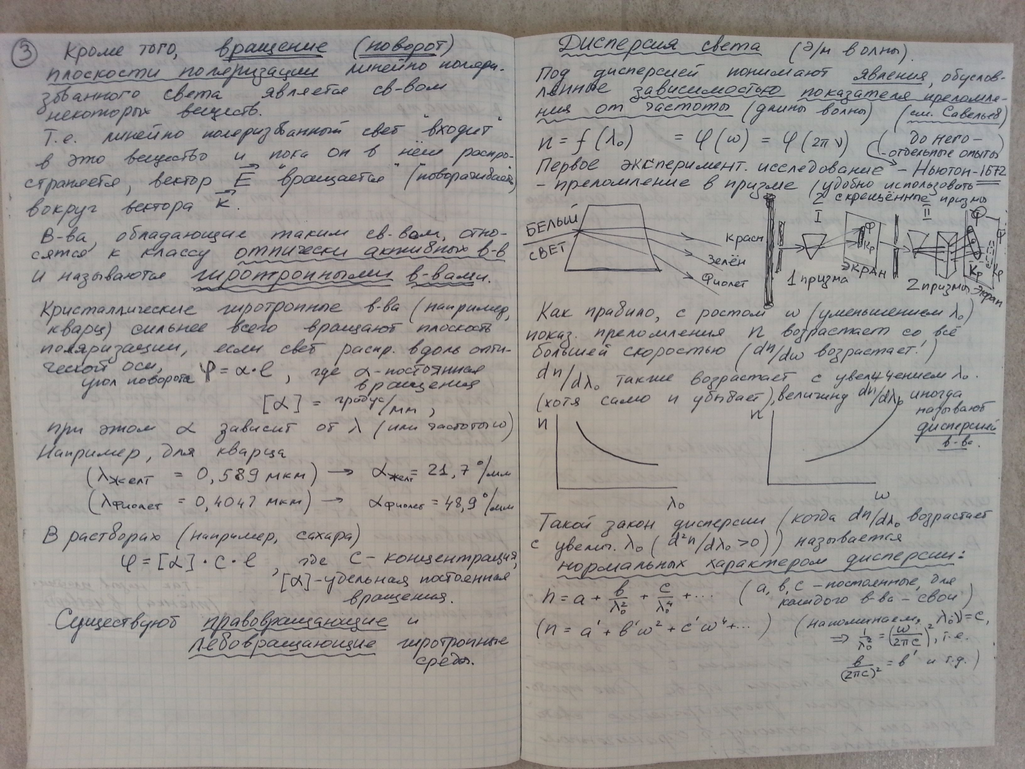 3
Кроме того, вращение (поворот)
плоскости поляризации линейно поляри-
зованного света является св-вом
некоторых веществ.
Т.е. линейно поляризованный свет "входит"
в это вещество и пока он в нём распро-
страняется, вектор E "вращается" (поворачивается)
вокруг вектора k.
В-ва, обладающие таким св-вом, отно-
сятся к классу оптически активных в-в
и называются гиротропными в-вами.
Кристаллические гиротропные в-ва (например,
кварц) сильнее всего вращают плоскость
поляризации, если свет распр. вдоль опти-
ческой оси,
угол поворота φ = α·ℓ, где α-постоянная
вращения
[α] = градус/мм,
при этом α зависит от λ (или частоты ω)
Например, для кварца
(λжелт = 0,589 мкм) → αжелт = 21,7°/мм
(λфиолет = 0,4047 мкм) → αфиолет = 48,9°/мм
В растворах (например, сахара)
φ = [α]·c·ℓ, где c - концентрация,
[α]-удельная постоянная
вращения.
Существуют правовращающие и
левовращающие гиротропные
среды.
Дисперсия света (э/м волны).
Под дисперсией понимают явления, обуслов-
ленные зависимостью показателя преломле-
ния от частоты (длины волны) (см. Савельев)
n = f(λ₀) = φ(ω) = φ(2πν) (до него-
отдельные опыты)
Первое эксперимент. исследование - Ньютон-1672
- преломление в призме (удобно использовать
2 скрещённые призмы
БЕЛЫЙ
СВЕТ
Красн
Зелён
Фиолет
I
Ф
Кр
ЭКРАН
1 призма
II
2 призмы
Ф
Кр
Экран
Как правило, с ростом ω (уменьшением λ₀)
показ. преломления n возрастает со всё
большей скоростью (dn/dω возрастает!)
dn/dλ₀ также возрастает с увеличением λ₀
(хотя само n убывает), величину dn/dλ₀ иногда
называют
дисперсией
в-ва.
n
λ₀
n
ω
Такой закон дисперсии (когда dn/dλ₀ возрастает
с увелич. λ₀ (d²n/dλ₀ > 0)) называется
нормальных характером дисперсии:
n = a + b/λ₀² + c/λ₀⁴ + ... (a, b, c - постоянные, для
каждого в-ва - свои)
(n = a' + b'ω² + c'ω⁴ + ...) (напоминаем, λ₀ν = c,
⇒ 1/λ₀² = (ω/2πc)², т.е.
b/(2πc)² = b' и т.д.)